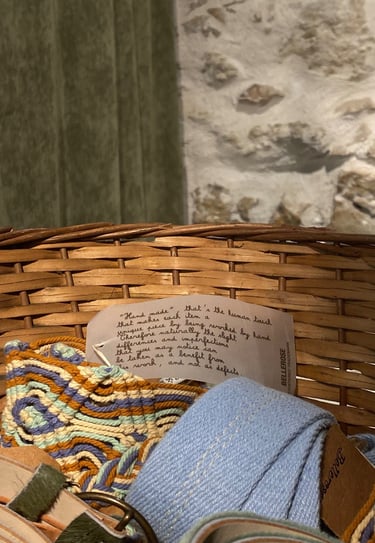 "Hand made" that's the human touch
that makes each item a
unique piece by being worked by hand
Therefore naturally the slight
differences and imperfections
that you may notice can
be taken as a benefit from
the work, and not as defects
BELLEROSE
Bellerose